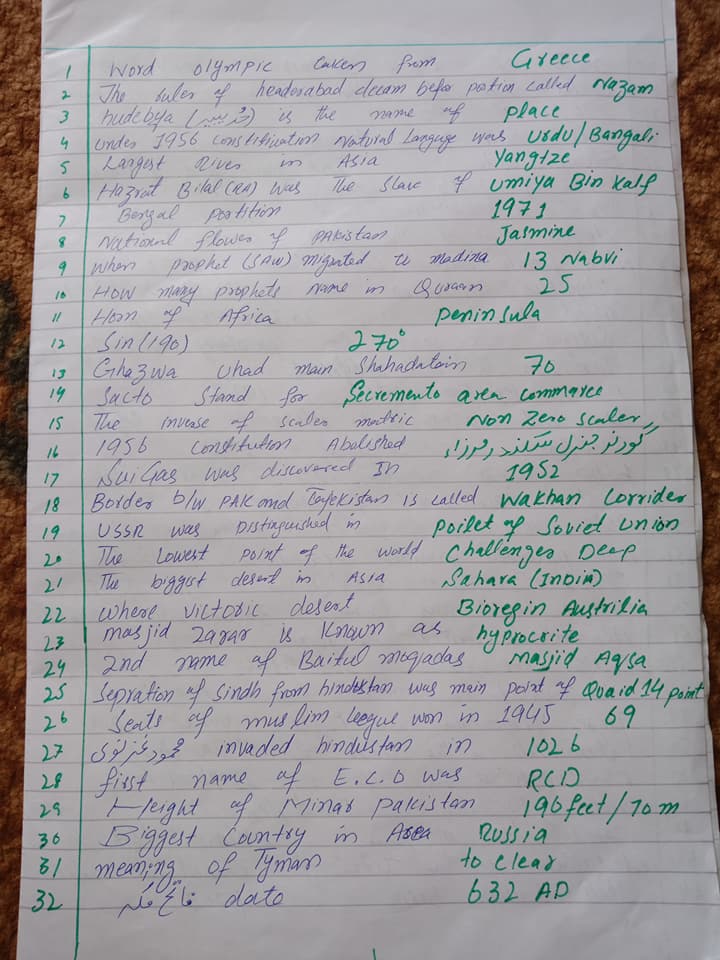 1 Word olympic taken from Greece
2 The ruler of headerabad deccam befor partion called Nazam
3 hudebya (حدیبیہ) is the name of place
4 under 1956 constitiuation Natural Langage was Urdu/Bangali
5 Largest River in Asia Yangtze
6 Hazrat Bilal (RA) was The Slave of Umiya Bin Kalf
7 Bengal partition 1971
8 National flower of PAKistan Jasmine
9 when prophet (SAW) migrated to madina 13 Nabvi
10 HOW many prophets name in Quraan 25
11 Horn of Africa peninsula
12 Sin(190) 270°
13 Ghazwa Uhad main Shahadatain 70
14 Sacto Stand for Secremento area commarce
15 The inverse of scaler matric Non Zero scaler
16 1956 constitution Abolished گورنر جنرل سکندر مرزا
17 Sui Gas was discovered In 1952
18 Border b/w PAK and Tajekistan is called Wakhan Corrider
19 USSR was Distinguished in Poilet of Soviet Union
20 The Lowest point of the world Challenges Deep
21 The biggest desert in Asia Sahara (India)
22 where victoric desert Bioregin Austrilia
23 masjid Zarar is Known as hyprocrite
24 2nd name of Baitul moqadas Masjid Aqsa
25 Sepration of Sindh from hindustan was main point of Quaid 14 point
26 Seats of muslim league won in 1945 69
27 محمود غزنوی invaded hindustan in 1026
28 first name of E.C.O was RCD
29 Height of Minar Pakistan 196 feet/70 m
30 Biggest Country in Area Russia
31 meaning of Tyman to clear
32 فتح مکہ date 632 AD